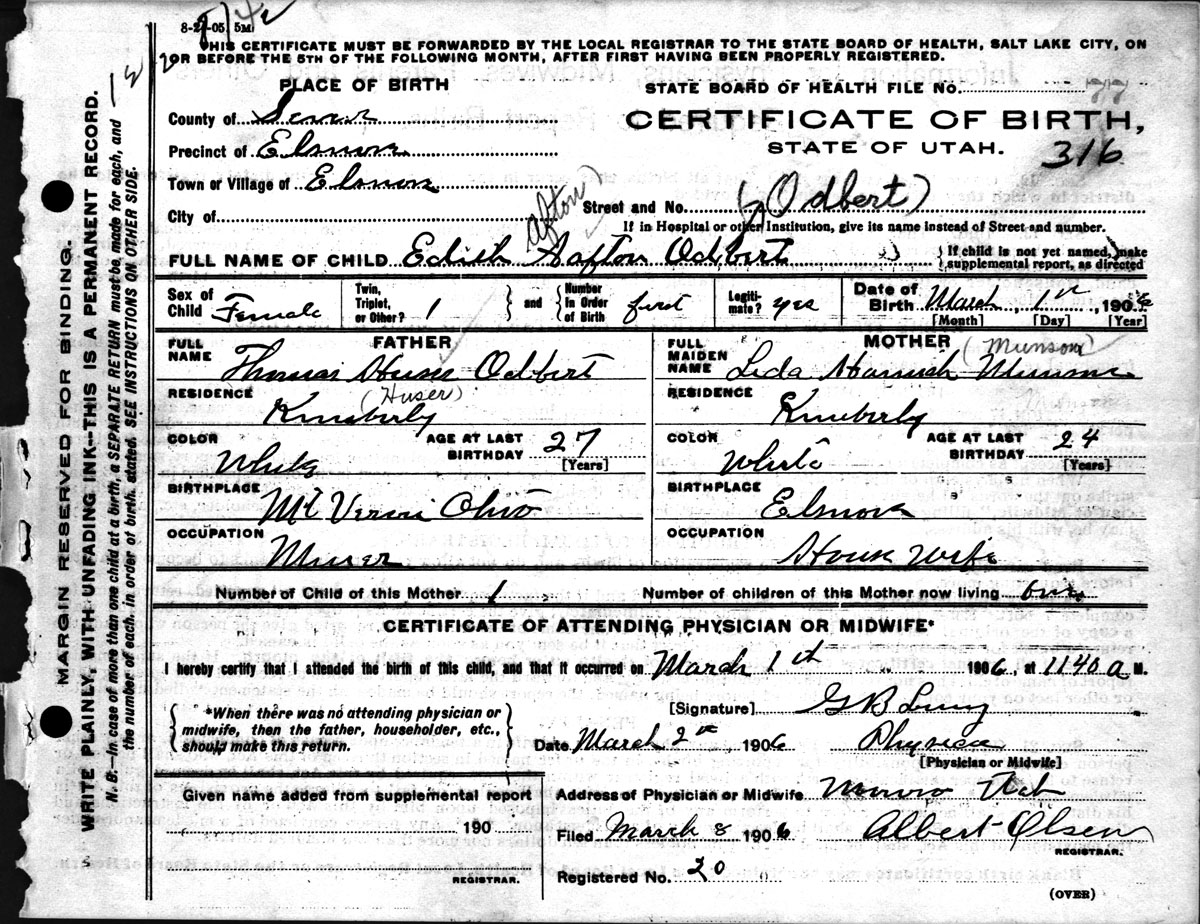 8-2-05 5M
THIS CERTIFICATE MUST BE FORWARDED BY THE LOCAL REGISTRAR TO THE STATE BOARD OF HEALTH, SALT LAKE CITY, ON
OR BEFORE THE 5TH OF THE FOLLOWING MONTH, AFTER FIRST HAVING BEEN PROPERLY REGISTERED.
MARGIN RESERVED FOR BINDING.
WRITE PLAINLY, WITH UNFADING INK—THIS IS A PERMANENT RECORD.
N. B.—In case of more than one child at a birth, a SEPARATE RETURN must be made for each, and
the number of each, in order of birth, stated. SEE INSTRUCTIONS ON OTHER SIDE.
PLACE OF BIRTH
STATE BOARD OF HEALTH FILE No. 77
County of
CERTIFICATE OF BIRTH,
STATE OF UTAH.
316
Precinct of Elsinore
Town or Village of Elsinore
City of
Afton
Street and No. (Odbert)
If in Hospital or other Institution, give its name instead of Street and number.
FULL NAME OF CHILD Edith Aafton Odbert
If child is not yet named, make
supplemental report, as directed
Sex of Child Female
Twin, Triplet, or Other? 1 and Number in Order of Birth first
Legitimate? yes
Date of Birth March, 1st, 1906
[Month] [Day] [Year]
FATHER
FULL NAME Thomas Huser Odbert
(Huser)
RESIDENCE Kimberly
COLOR White
AGE AT LAST BIRTHDAY 27
[Years]
BIRTHPLACE Mt Vernon Ohio
OCCUPATION Miner
MOTHER (Munson)
FULL MAIDEN NAME Leda Hannah Munson
RESIDENCE Kimberly
COLOR White
AGE AT LAST BIRTHDAY 24
[Years]
BIRTHPLACE Elsinore
OCCUPATION House Wife
Number of Child of this Mother 1
Number of children of this Mother now living one
CERTIFICATE OF ATTENDING PHYSICIAN OR MIDWIFE*
I hereby certify that I attended the birth of this child, and that it occurred on March 1th 1906, at 1140 a M.
*When there was no attending physician or
midwife, then the father, householder, etc.,
should make this return.
[Signature] G B
Date March 2nd, 1906
Physician
[Physician or Midwife]
Given name added from supplemental report
190
REGISTRAR.
Address of Physician or Midwife Monroe Utah
Filed March 8 1906 Albert Olsen
REGISTRAR.
Registered No. 20
(OVER)